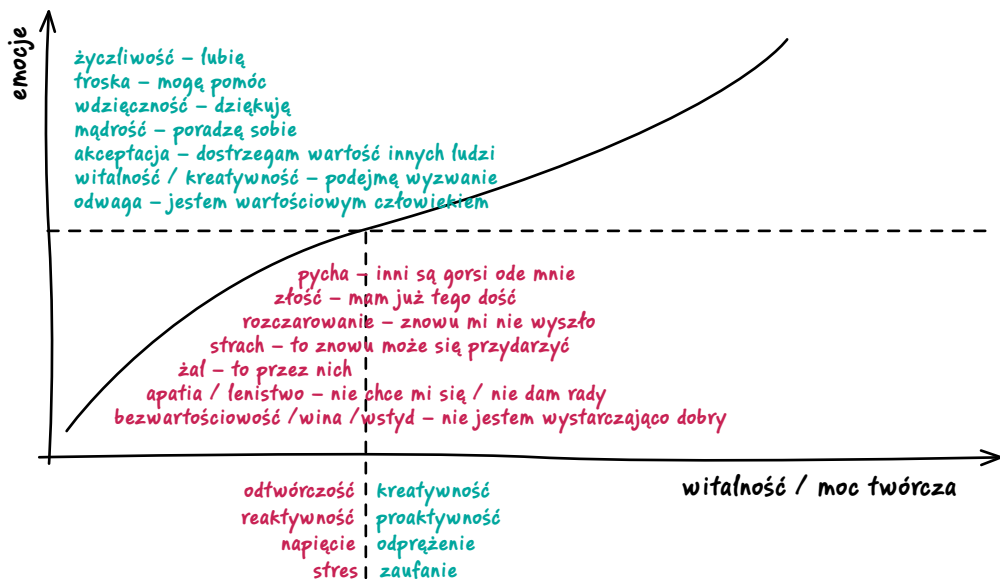 emocje
życzliwość – lubię
troska – mogę pomóc
wdzięczność – dziękuję
mądrość – poradzę sobie
akceptacja – dostrzegam wartość innych ludzi
witalność / kreatywność – podejmę wyzwanie
odwaga – jestem wartościowym człowiekiem
pycha – inni są gorsi ode mnie
złość – mam już tego dość
rozczarowanie – znowu mi nie wyszło
strach – to znowu może się przydarzyć
żal – to przez nich
apatia / lenistwo – nie chce mi się / nie dam rady
bezwartościowość /wina /wstyd – nie jestem wystarczająco dobry
witalność / moc twórcza
odtwórczość kreatywność
reaktywność proaktywność
napięcie odprężenie
stres zaufanie